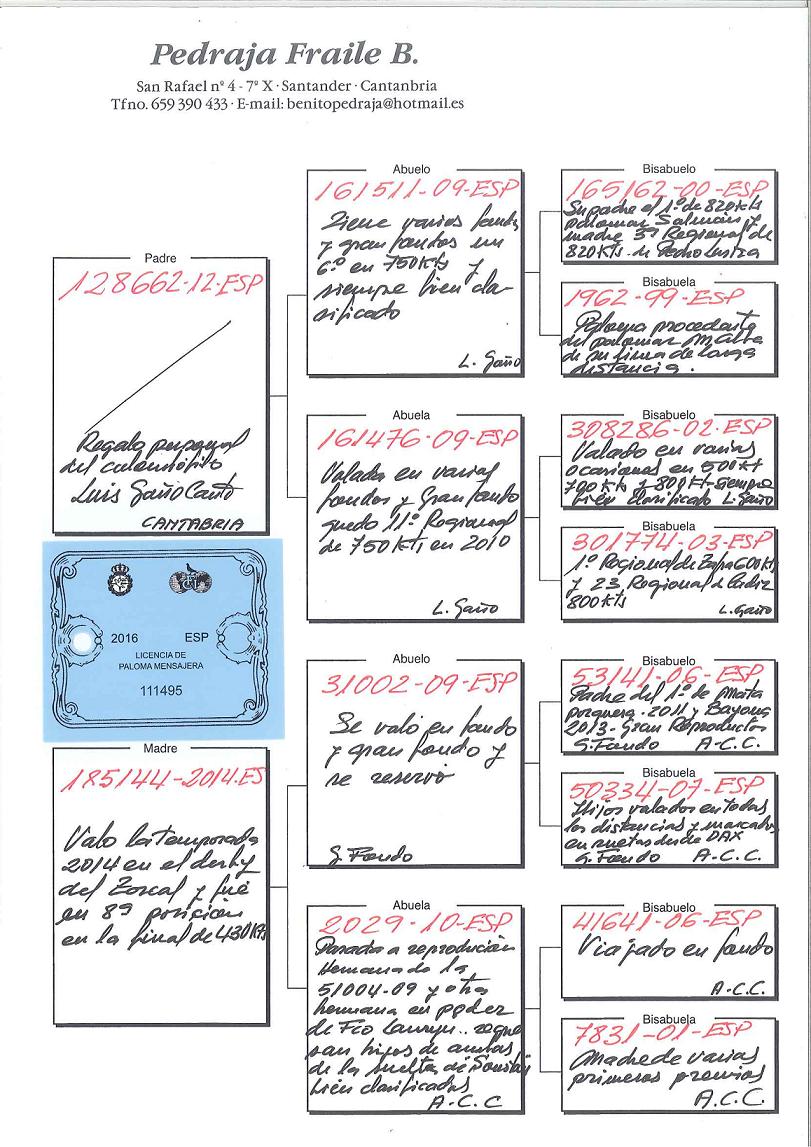 Pedraja Fraile B.
San Rafael nº 4 - 7º X · Santander · Cantanbria
Tfno. 659 390 433 · E-mail: benitopedraja@hotmail.es
Padre
128662-12-ESP
Regalo personal
del colombófilo
Luis Gaño Canto
CANTABRIA
2016 ESP
LICENCIA DE
PALOMA MENSAJERA
111495
Madre
185144-2014.ES
Valo la temporada
2014 en el derby
del Zorcal y fué
en 89 posición
en la final de 430 Kts
Abuelo
161511-09-ESP
Tiene varios fondos
y gran fondos un
6º en 750 Kts y
siempre bien cla-
sificado
L. Gaño
Abuela
161476-09-ESP
Volada en varios
fondos y Gran fondo
quedo 11º Regional
de 750 kts en 2010
L. Gaño
Abuelo
31002-09-ESP
Se való en fondo
y gran fondo y
se reservó
G. Fondo
Abuela
2029-10-ESP
Pasada a reprodución
Hermana de la
51004-09 y otra
hermana en poder
de Fco
son hijos de ambas
de la suelta de
bien clasificados
A-C.C
Bisabuelo
165162-00-ESP
Su padre el 1º de 820 kts
palomar Salmón y
madre 3º Regional de
820 Kts. de Pedro
Bisabuela
1962-99-ESP
Paloma procedente
del palomar
de su firma de larga
distancia.
Bisabuelo
308286-02-ESP
Volado en varias
ocasiones en 500 Kt
700 kts y 800 kts siempre
bien clasificado L. Gaño
Bisabuela
301774-03-ESP
1º Regional de Zafra 600 Kts
y 23 Regional de Cadiz
800 kts
L. Gaño
Bisabuelo
53141-06-ESP
Padre del 1º de Mata
porquera-2011 y Bayona
2013-Gran Reproductor
G. Fondo A.C.C.
Bisabuela
50334-07-ESP
Hijos valados en todas
las distancias y marcados
en sueltas desde DAX
G. Fondo A.C.C.
Bisabuelo
41641-06-ESP
Viajado en fondo
A.C.C.
Bisabuela
7831-01-ESP
Madre de varios
primeros premios
A.C.C.